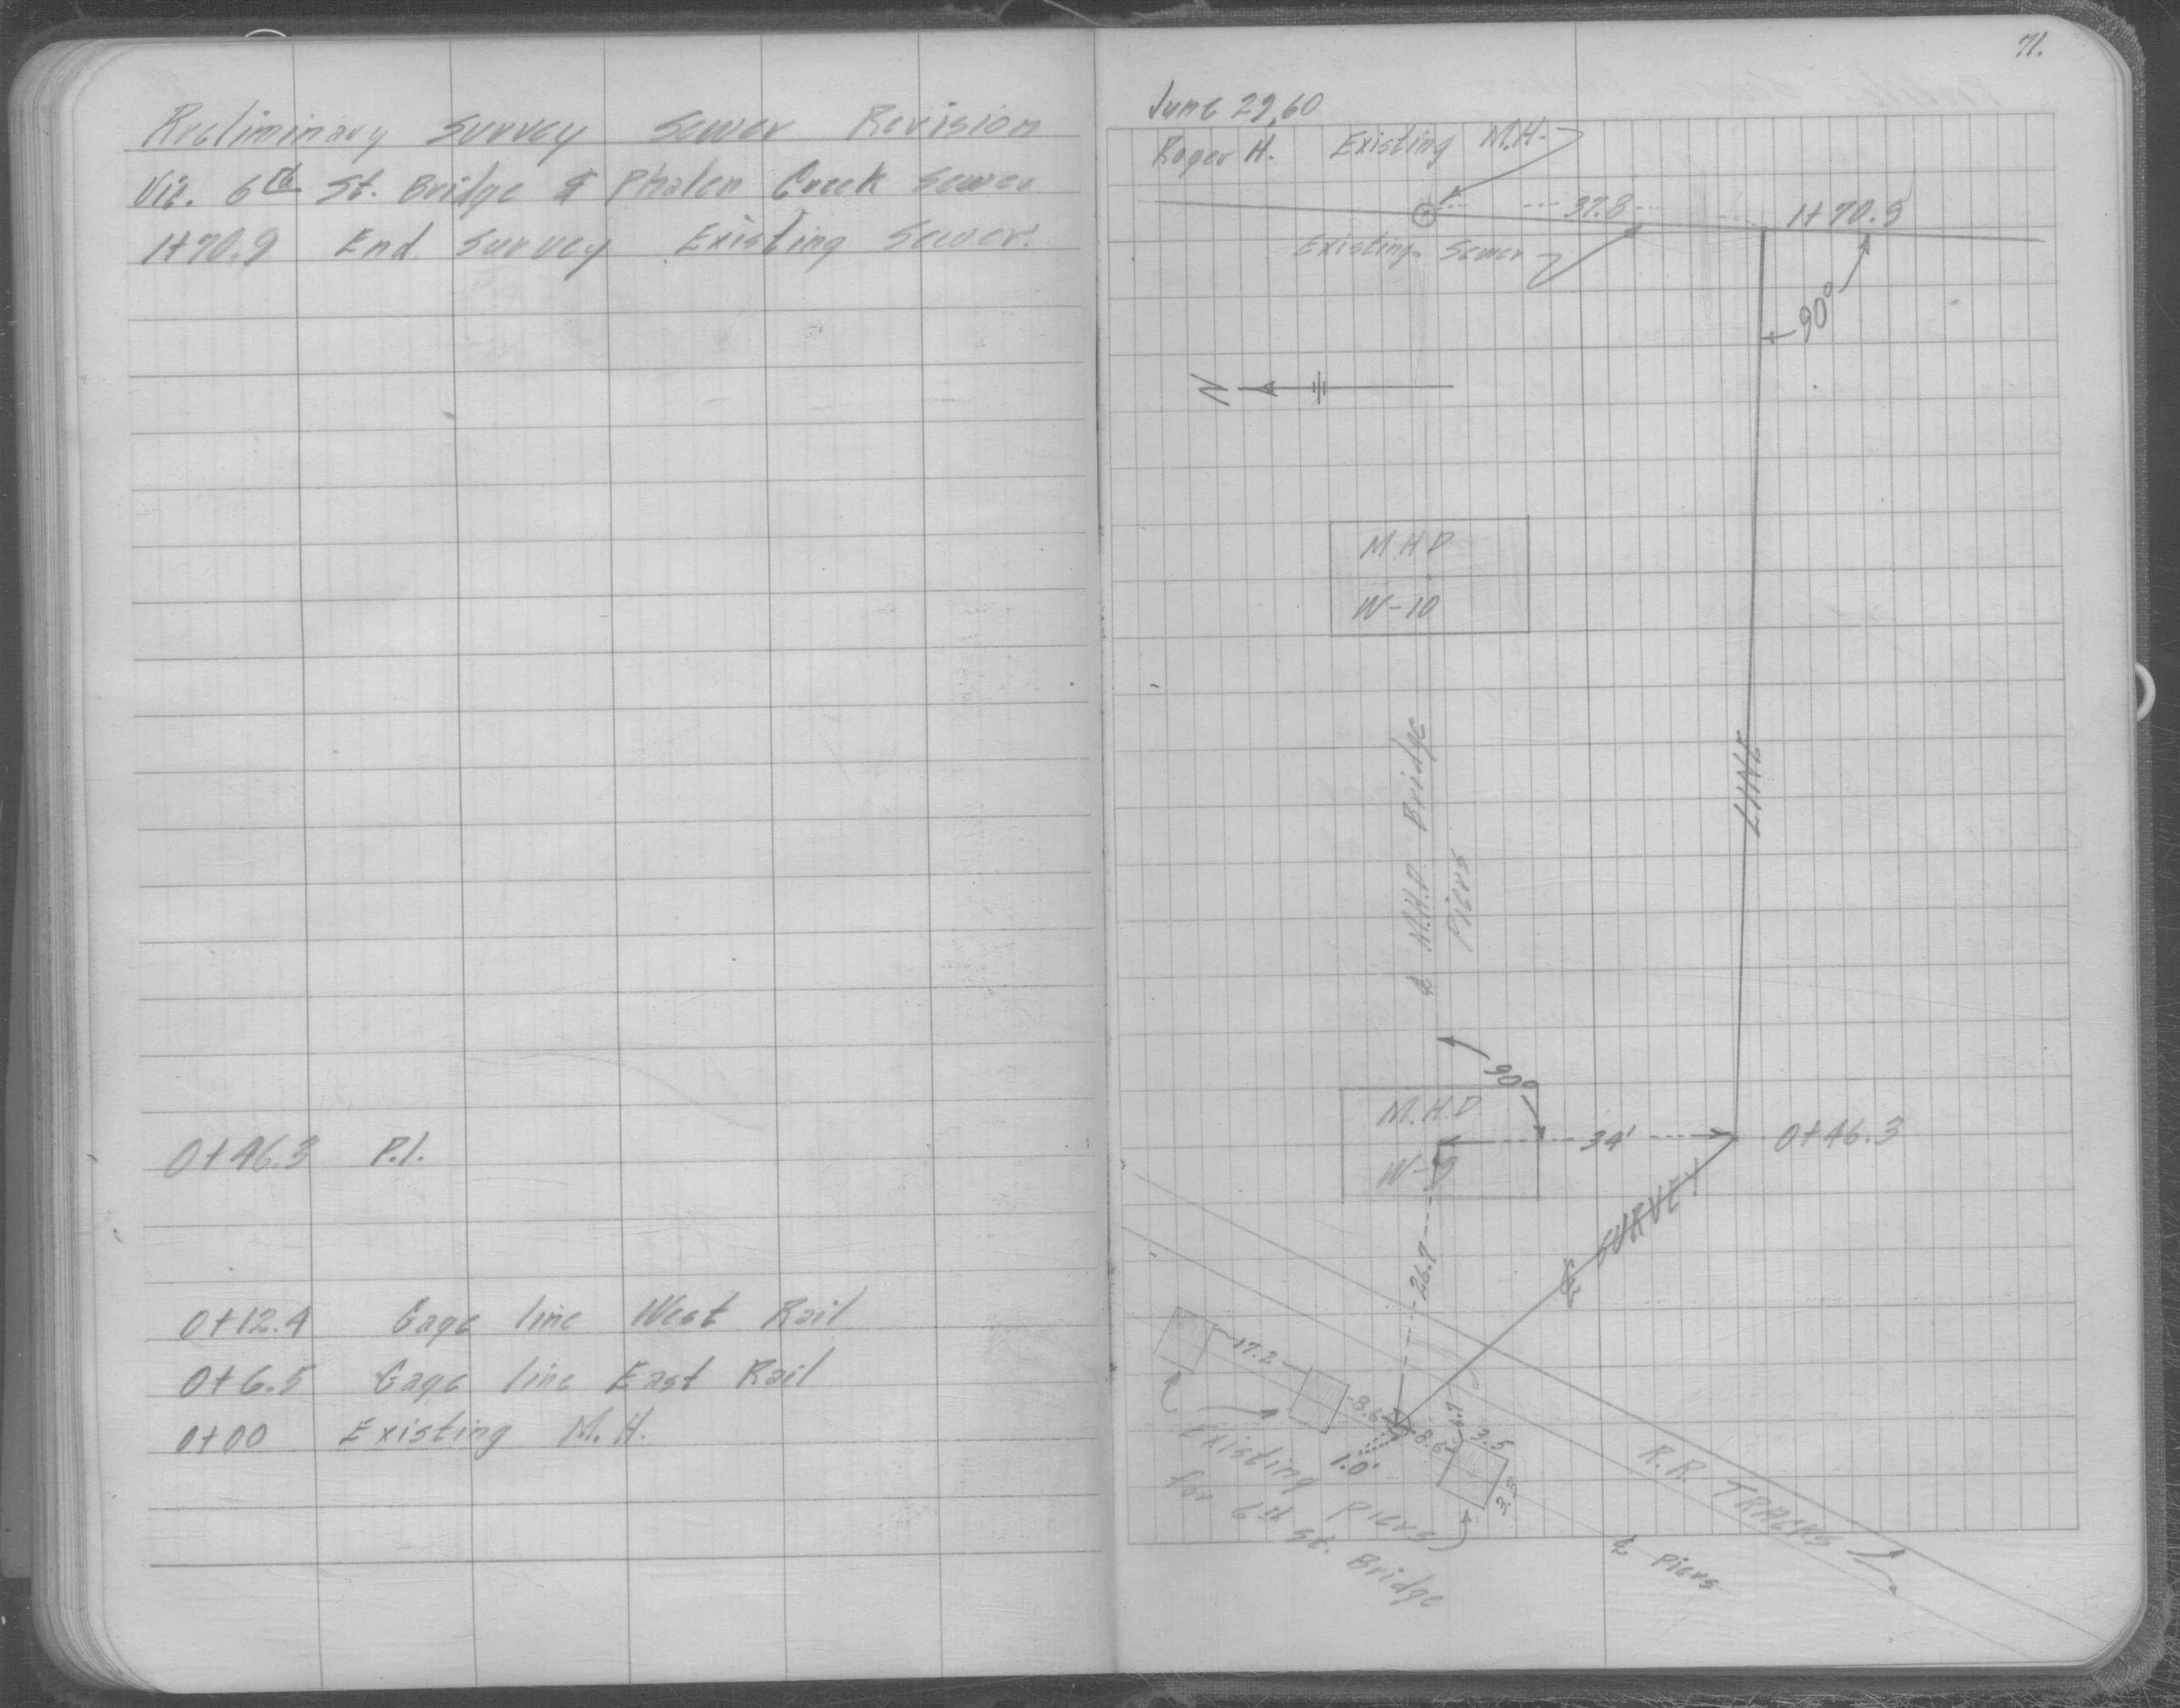 Preliminary Survey Sewer Revision
Vic. 6th St. Bridge & Phalen Creek Sewer
1+70.9 End Survey Existing Sewer.
0+46.3 P.I.
0+12.4 Gage line West Rail
0+6.5 Gage line East Rail
0+00 Existing M.H.
71.
June 29,60
Roger H. Existing M.H.
37.8
1+70.9
Existing Sewer
90°
N
M.H.D
W-10
LINE
℄ M.H.D. Bridge
Piers
90°
M.H.D
W-9
34'
0+46.3
℄ SURVEY
26.7
17.2
8.6
8.6
6.7
3.5
3.5
1.0'
Existing Piers
for 6th St. Bridge
R.R. TRACKS
℄ Piers